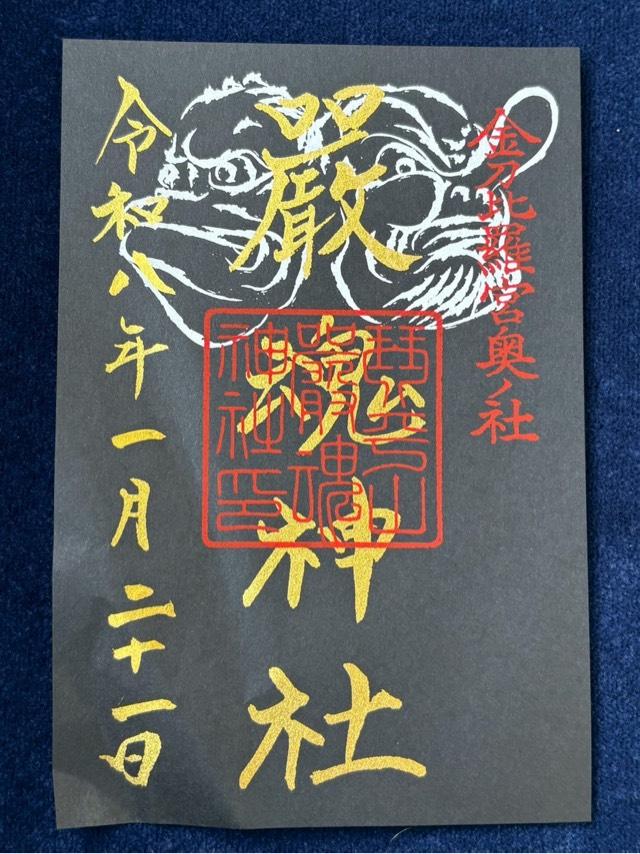 金刀比羅宮奥ノ社
嚴魂神社
琴平山
嚴魂
神社印
令和八年一月二十一日